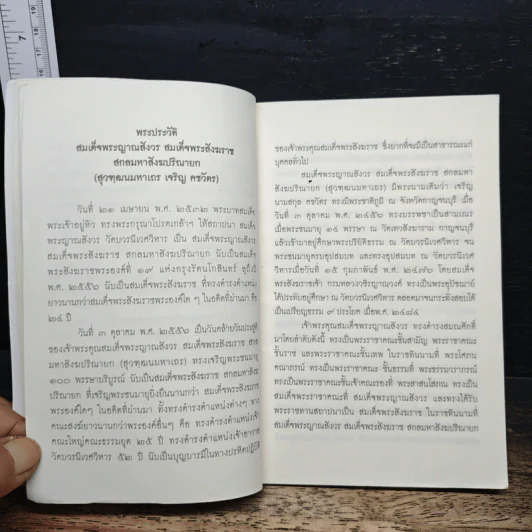 พระประวัติ
สมเด็จพระญาณสังวร สมเด็จพระสังฆราช
สกลมหาสังฆปริณายก
(สุวฑฺฒนมหาเถร เจริญ คชวัตร)
วันที่ ๒๑ เมษายน พ.ศ. ๒๕๓๒ พระบาทสมเด็จ
พระเจ้าอยู่หัว ทรงพระกรุณาโปรดเกล้าฯ ให้สถาปนา สมเด็จ
พระญาณสังวร วัดบวรนิเวศวิหาร เป็น สมเด็จพระญาณสังวร
สมเด็จพระสังฆราช สกลมหาสังฆปริณายก นับเป็นสมเด็จ
พระสังฆราชพระองค์ที่ ๑๙ แห่งกรุงรัตนโกสินทร์ จุถึงปี
พ.ศ. ๒๕๕๖ นับเป็นสมเด็จพระสังฆราช ที่ทรงดำรงตำแหน่ง
ยาวนานกว่าสมเด็จพระสังฆราชพระองค์ใด ๆ ในอดีตที่ผ่านมา คือ
๒๔ ปี
วันที่ ๓ ตุลาคม พ.ศ. ๒๕๕๖ เป็นวันคล้ายวันประสูติ
ของเจ้าพระคุณสมเด็จพระญาณสังวร สมเด็จพระสังฆราช สกล
มหาสังฆปริณายก (สุวฑฺฒนมหาเถร) ทรงเจริญพระชนมายุ
๑๐๐ พรรษาบริบูรณ์ นับเป็นสมเด็จพระสังฆราช สกลมหาสังฆ
ปริณายก ที่เจริญพระชนมายุยิ่งยืนนานกว่า สมเด็จพระสังฆราช
พระองค์ใดๆ ในอดีตที่ผ่านมา ทั้งทรงดำรงตำแหน่งต่างๆ ทาง
คณะสงฆ์ยาวนานกว่าพระองค์อื่นๆ คือ ทรงดำรงตำแหน่งเจ้า
คณะใหญ่คณะธรรมยุต ๒๕ ปี ทรงดำรงตำแหน่งเจ้าอาวาส
วัดบวรนิเวศวิหาร ๕๒ ปี นับเป็นบุญบารมีในทางประทีปปฏิบัติ
ของเจ้าพระคุณสมเด็จพระสังฆราช ซึ่งยากที่จะมีเป็นสาธารณะแก่
บุคคลทั่วไป
สมเด็จพระญาณสังวร สมเด็จพระสังฆราช สกลมหา
สังฆปริณายก (สุวฑฺฒนมหาเถร) มีพระนามเดิมว่า เจริญ
นามสกุล คชวัตร ทรงมีพระชาติภูมิ ณ จังหวัดกาญจนบุรี เมื่อ
วันที่ ๓ ตุลาคม พ.ศ. ๒๔๕๖ ทรงบรรพชาเป็นสามเณร
เมื่อพระชนมายุ ๑๔ พรรษา ณ วัดเทวสังฆาราม กาญจนบุรี
แล้วเข้ามาอยู่ศึกษาพระปริยัติธรรม ณ วัดบวรนิเวศวิหาร จน
พระชนมายุครบอุปสมบท และทรงอุปสมบท ณ วัดบวรนิเวศ
วิหารเมื่อวันที่ ๑๕ กุมภาพันธ์ พ.ศ. ๒๔๗๖ โดยสมเด็จ
พระสังฆราชเจ้า กรมหลวงวชิรญาณวงศ์ ทรงเป็นพระอุปัชฌาย์
ได้ประทับอยู่ศึกษา ณ วัดบวรนิเวศวิหาร ตลอดมาจนกระทั่งสอบได้
เป็นเปรียญธรรม ๙ ประโยค เมื่อพ.ศ. ๒๔๘๔
เจ้าพระคุณสมเด็จพระญาณสังวร ทรงดำรงสมณศักดิ์ที่
มาโดยลำดับดังนี้ ทรงเป็นพระราชาคณะชั้นสามัญ พระราชาคณะ
ชั้นราช และพระราชาคณะชั้นเทพ ในราชทินนามที่ พระโศภน
คณาภรณ์ ทรงเป็นพระราชาคณะ ชั้นธรรมที่ พระธรรมวราภรณ์
ทรงเป็นพระราชาคณะชั้นเจ้าคณะรองที่ พระสาสนโสภณ ทรงเป็น
สมเด็จพระราชาคณะที่ สมเด็จพระญาณสังวร และทรงได้รับ
พระราชทานสถาปนาเป็น สมเด็จพระสังฆราช ในราชทินนามที่
สมเด็จพระญาณสังวร สมเด็จพระสังฆราช สกลมหาสังฆปริณายก